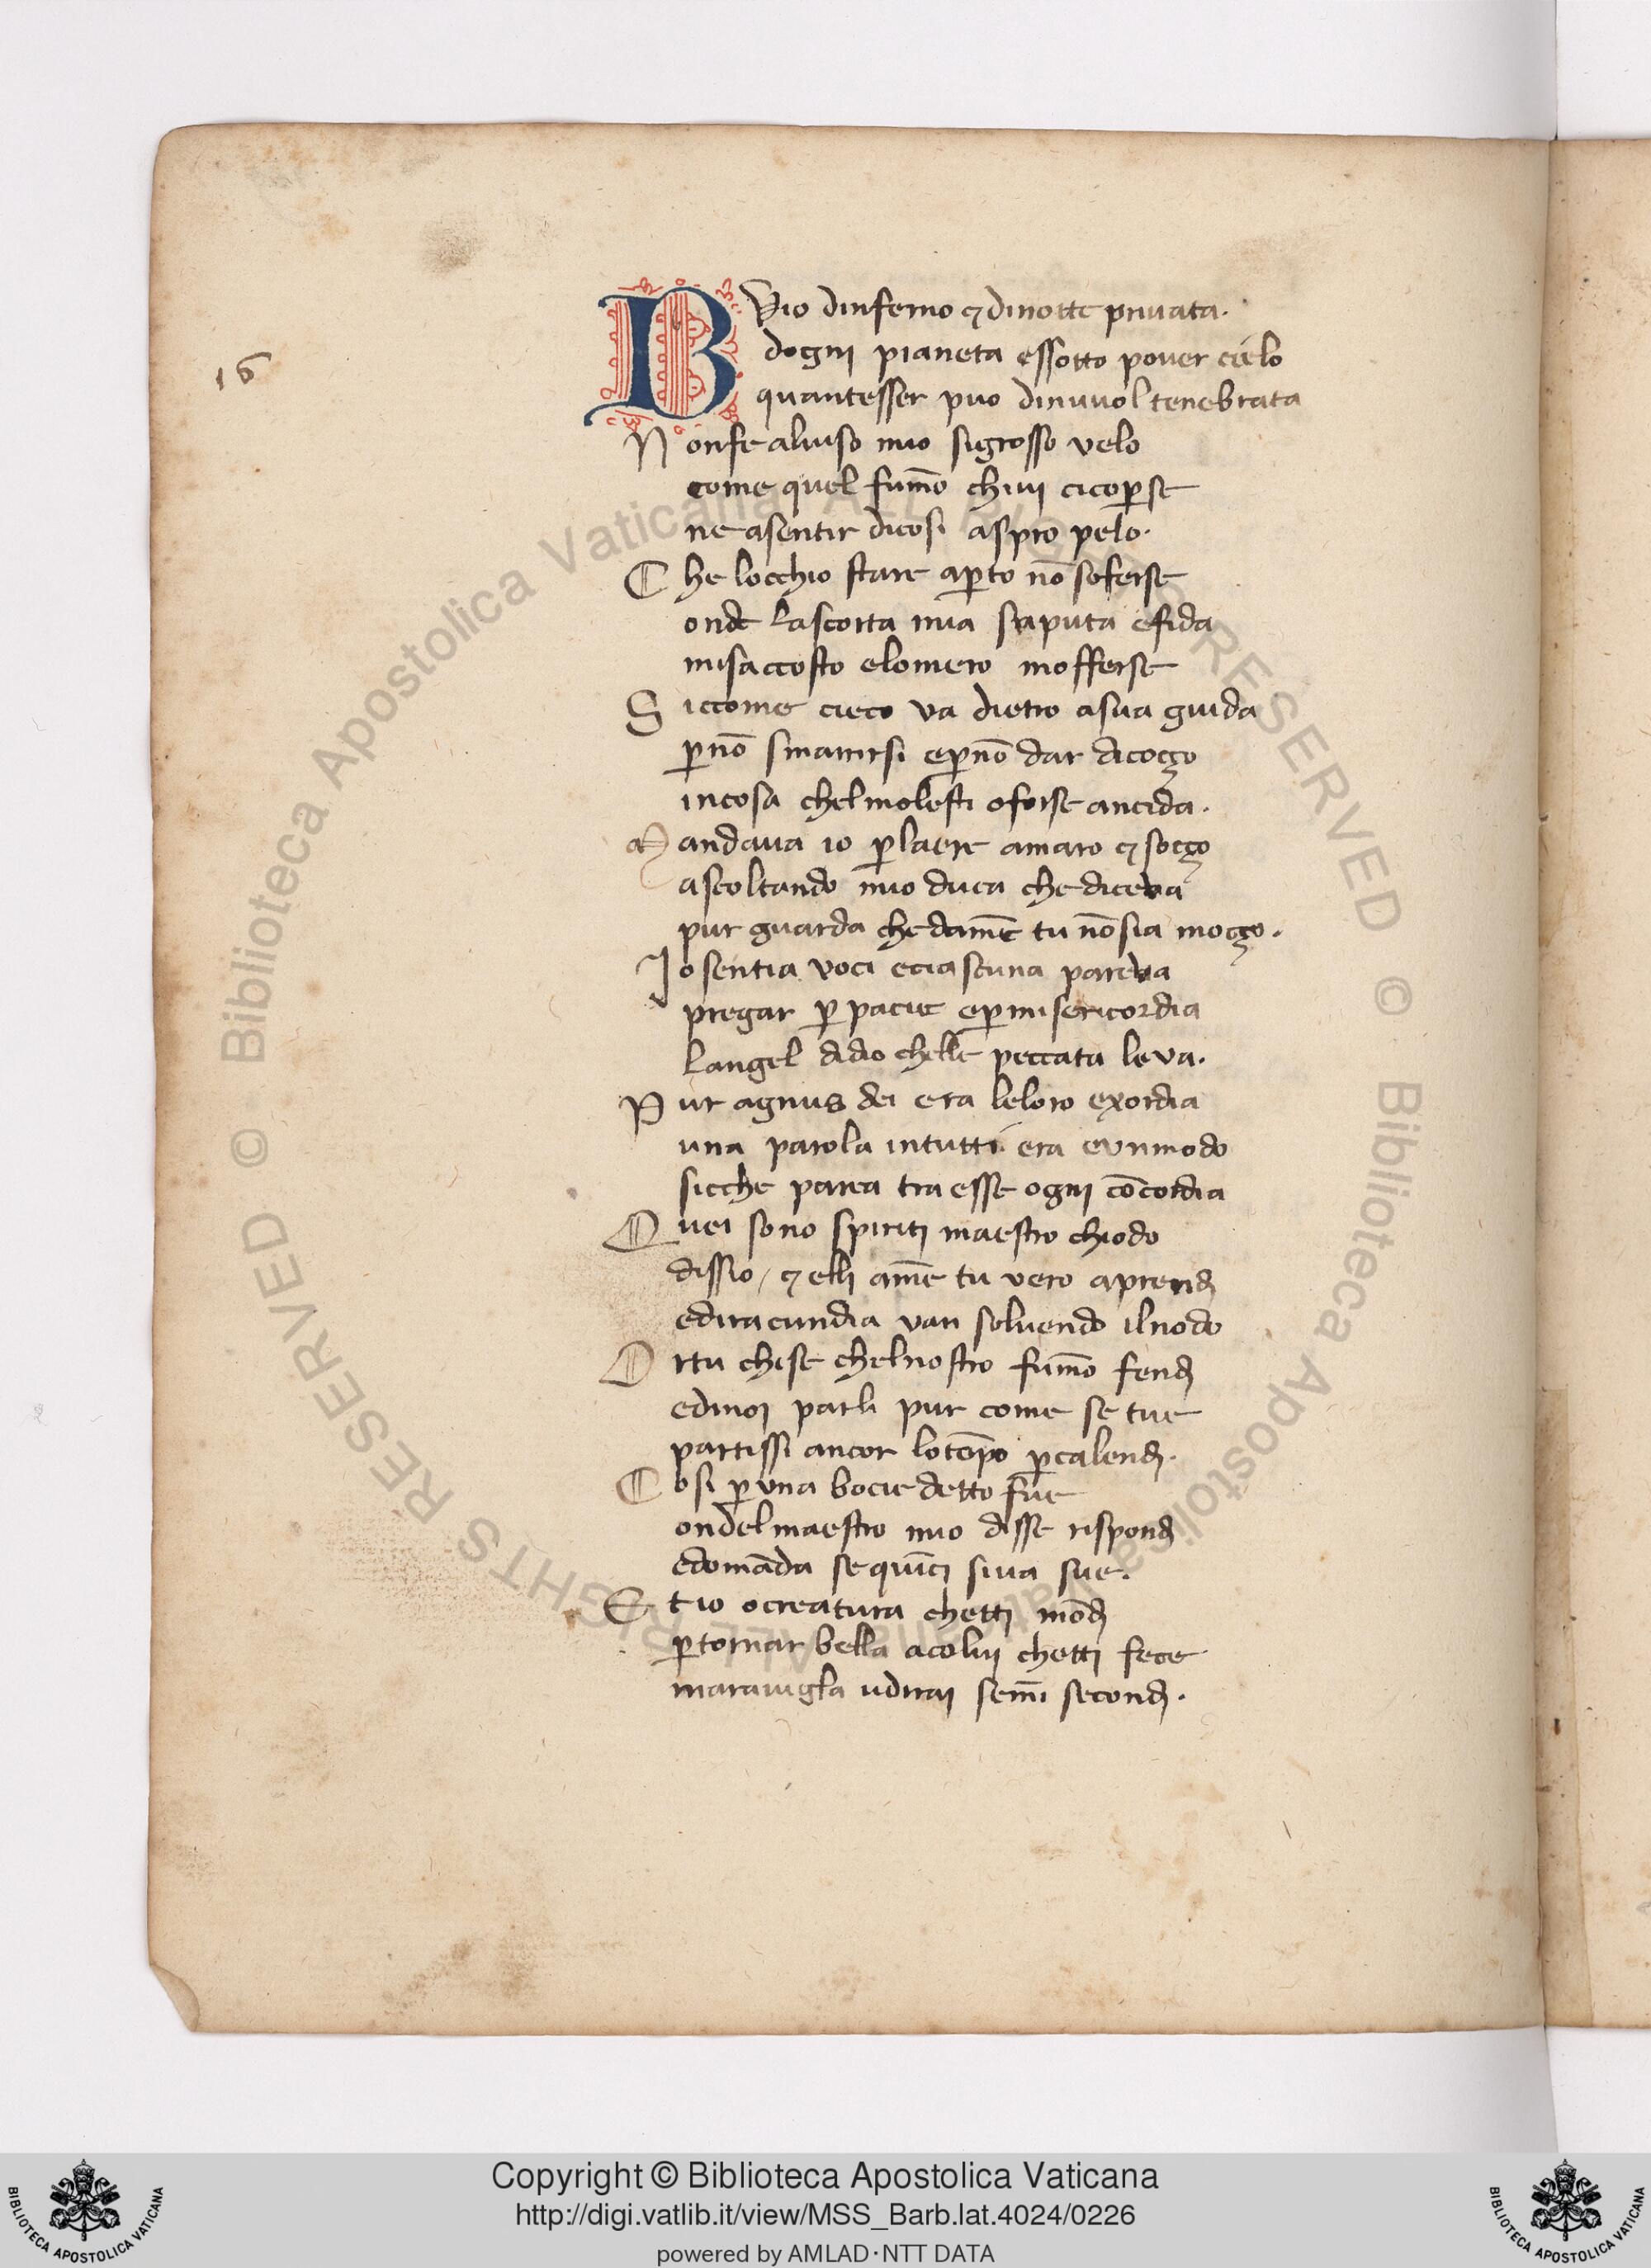 16
BVio dinferno ⁊ dinotte priuata.
dogni pianeta essotto pouer cielo
quantesser puo dinuuol tenebrata
Nonfe aluiso mio sigrosso velo
come quel fum̅o chiui cicoꝑse
ne asentir dicosi aspro pelo.
Che locchio stare aꝑto no̅ soferse
onde lascorta mia saputa efida
misaccosto elomero mofferse
Siccome cieco va dietro asua guida
ꝑno̅ smarrirsi eꝑno̅ dar dicoçço
incosa chelmolesti oforse ancida.
Mandaua io ꝑlaere amaro ⁊ soçço
ascoltando mio duca che diceva
pur guarda chedame tu no̅sia moçço.
Iosentia voci eciascuna pareva
pregar ꝑ pacie eꝑmisericordia
langel didio chelle peccata leva.
Pur agnus dei era leloro exordia
una parola intutti era eunmodo
sicche parea tra esse ogni co̅cordia
Quei sono spiriti maestro chiodo
dissio / ⁊ elli ame tu vero aprendi
ediracundia van soluendo ilnodo
Ortu chise chelnostro fum̅o fendi
edinoi parli pur come se tue
partissi ancor lote̅po ꝑcalendi.
Cosi ꝑ vna bocie detto fue
ondelmaestro mio disse rispondi
edoma̅da sequi̅ci siua sue.
Et io ocreatura chetti mo̅di
ꝑtornar bella acolui chetti fece
marauigla udirai sem̅i secondi.
Copyright © Biblioteca Apostolica Vaticana
http://digi.vatlib.it/view/MSS_Barb.lat.4024/0226
powered by AMLAD·NTT DATA
BIBLIOTECA APOSTOLICA VATICANA
BIBLIOTECA APOSTOLICA VATICANA
© Biblioteca Apostolica Vaticana ALL RIGHTS RESERVED © Biblioteca Apostolica Vaticana ALL RIGHTS RESERVED